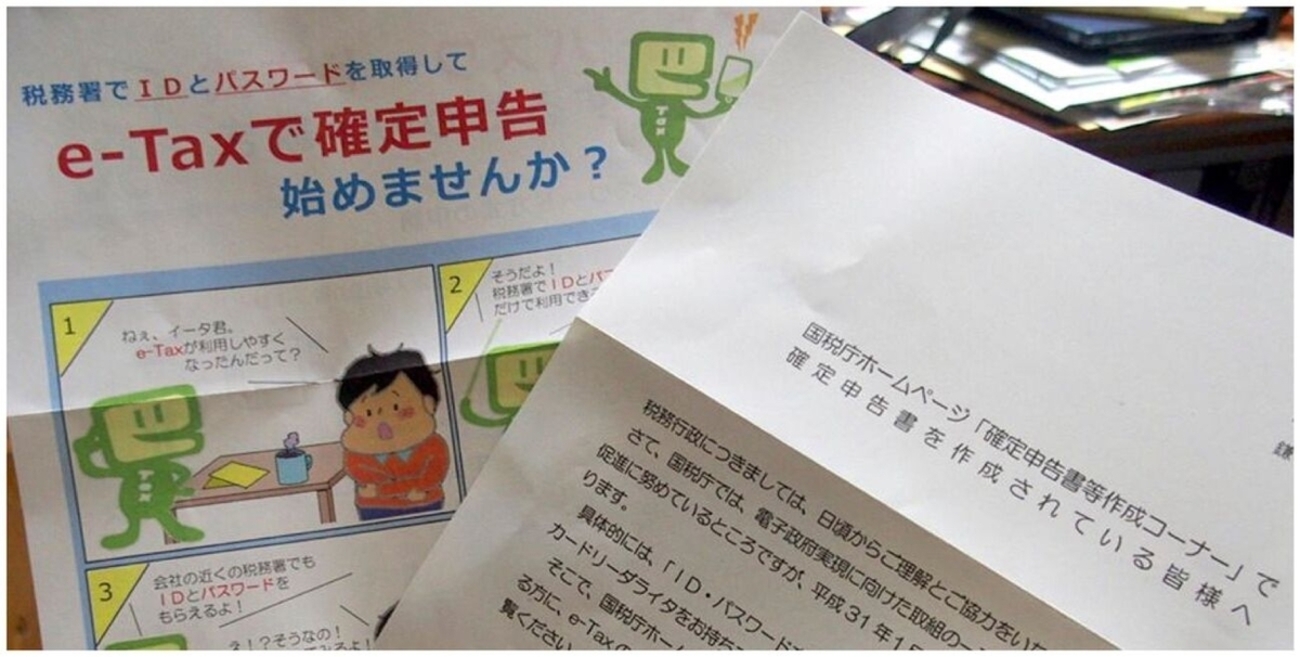 税務署でIDとパスワードを取得して
e-Taxで確定申告
始めませんか?
TAX
1
ねぇ、イータ君。
e-Taxが利用しやすく
なったんだって?
TAX
2
そうだよ!
税務署でIDとパス
だけで利用でき
3
会社の近くの税務署でも
IDとパスワードを
もらえるよ!
え!?そうなの!
鎌
国税庁ホームページ「確定申告書等作成コーナー」で
確定申告書を作成されている皆様へ
税務行政につきましては、日頃からご理解とご協力をいた
さて、国税庁では、電子政府実現に向けた取組の一
促進に努めているところですが、平成31年1
ります。
具体的には、「ID・パスワード
カードリーダライタをお持ち
そこで、国税庁ホーム
る方に、e-Taxの
覧ください